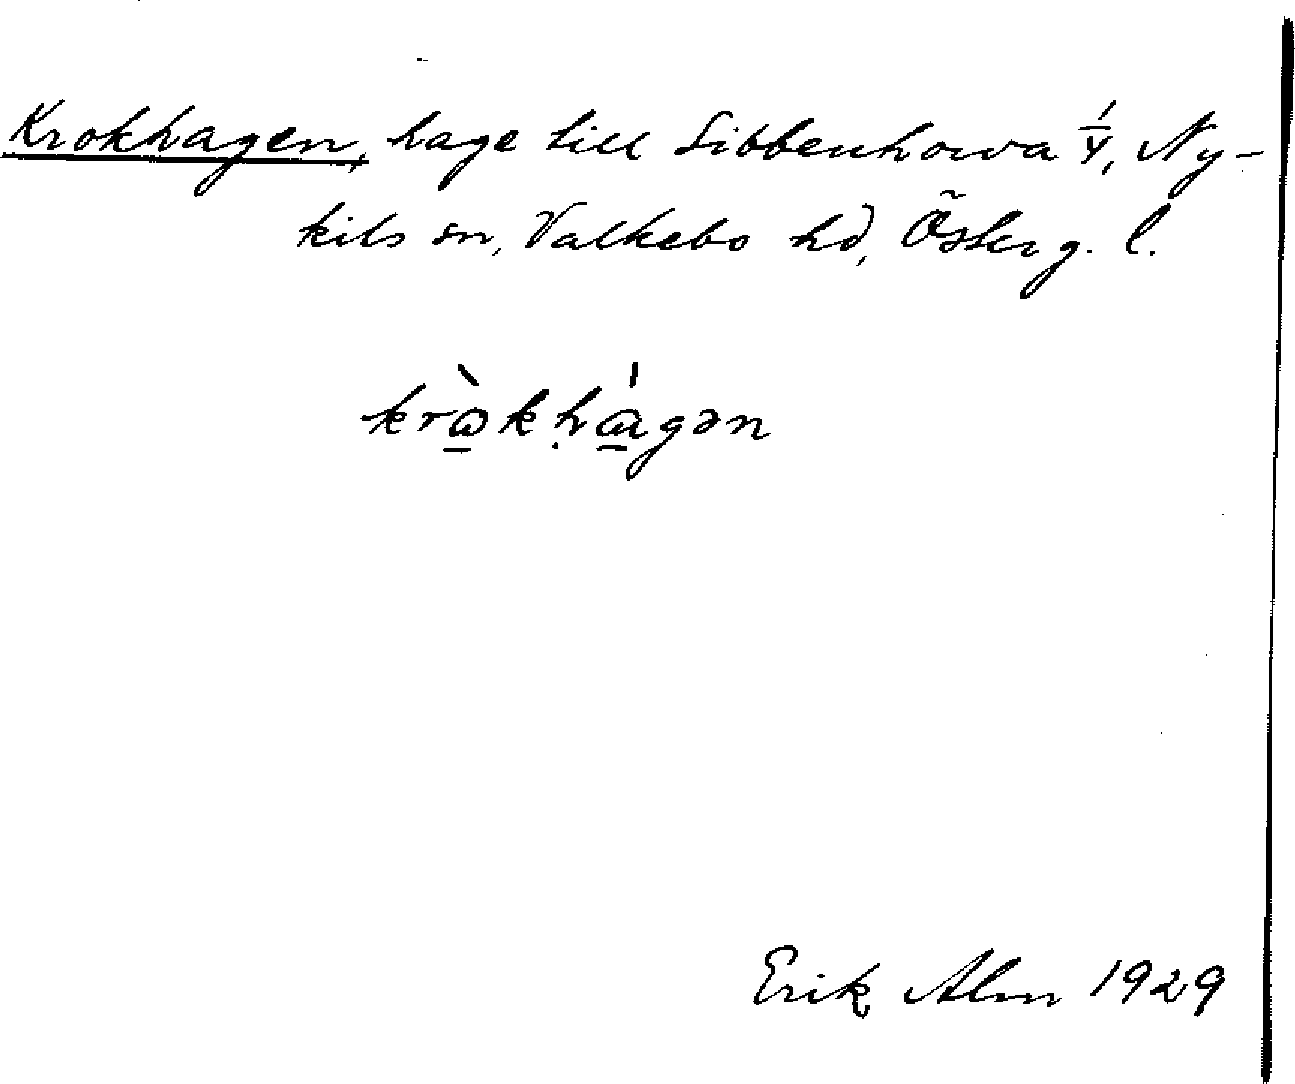 Krokhagen, hage till Sibbenhorva 1/4, Ny-
kils sn, Valkebo hd, Österg. l.
krɷ̀kḥɑ́gən
Erik Alm 1929